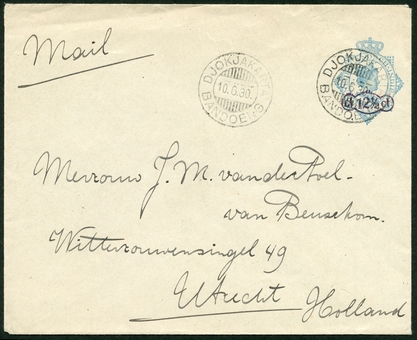 Mail
DJOKJAKARTA
10.6.30.
BANDOENG
DJOKJAKARTA
10.6.30.
BANDOENG
12½ ct
Mevrouw J. M. van de Poel-
van Beusekom.
Wittevrouwensingel 49
Utrecht Holland